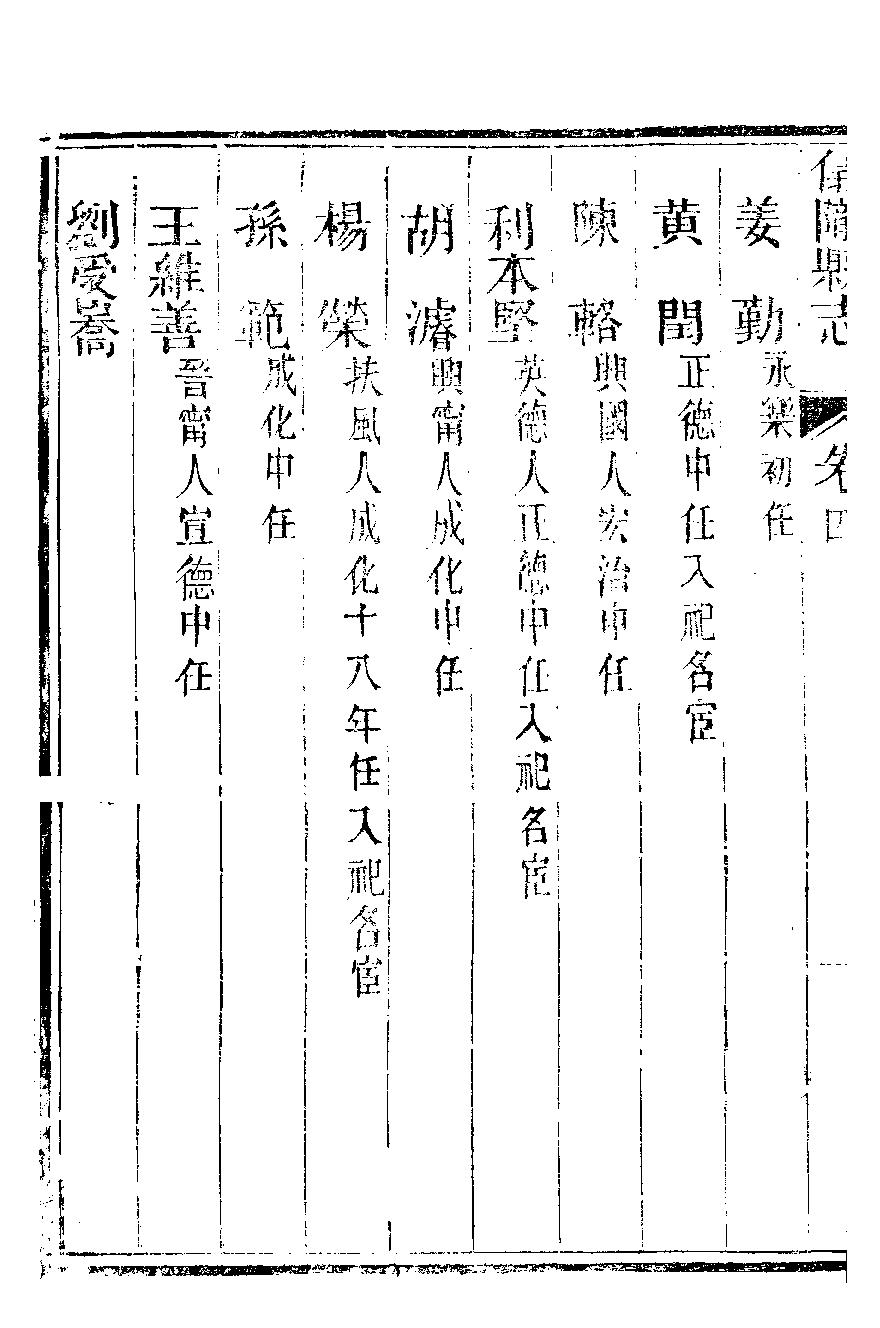 縣志 卷四
姜勤 永樂初任
黃閏 正德中任入祀名宦
陳輅 興國人宏治中任
利本堅 英德人正德中任入祀名宦
胡濬 興甯人成化中任
楊榮 扶風人成化十八年任入祀名宦
孫範 成化中任
王維善 晉甯人宣德中任
劉受嵩